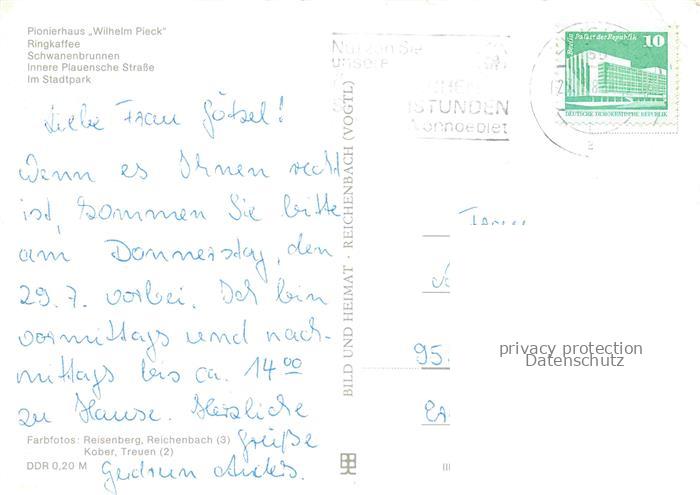 Pionierhaus „Wilhelm Pieck"
Ringkaffee
Schwanenbrunnen
Innere Plauensche Straße
Im Stadtpark
Nutzen Sie
unsere
STUNDEN
Berlin Palast der Republik 10
DEUTSCHE DEMOKRATISCHE REPUBLIK
Liebe Frau Götzel!
Wenn es Ihnen recht
ist, kommen Sie bitte
am Donnerstag, den
29.7. vorbei. Ich bin
vormittags und nach-
mittags bis ca. 14 00
zu Hause. Herzliche
Grüße
Gudrun
BILD UND HEIMAT · REICHENBACH (VOGTL)
95
privacy protection
Datenschutz
Farbfotos: Reisenberg, Reichenbach (3)
Kober, Treuen (2)
DDR 0,20 M